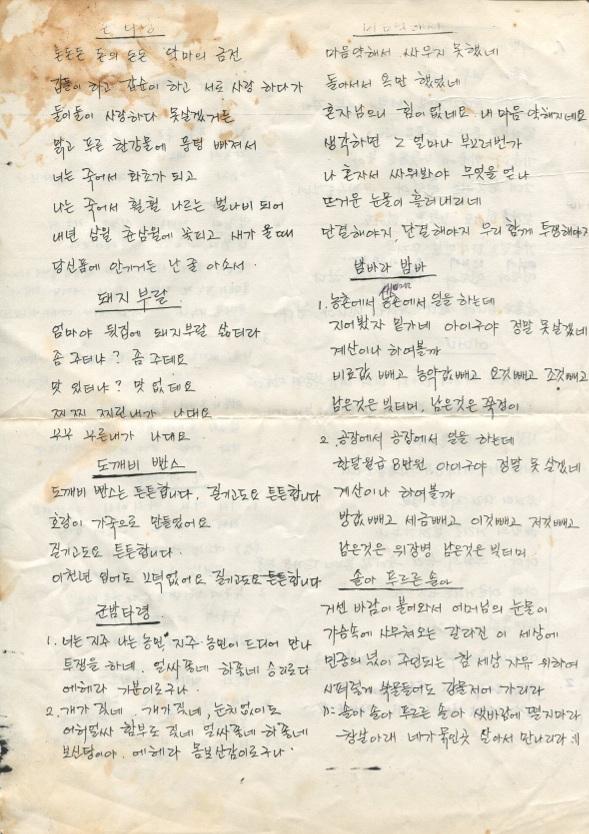 돈돈돈 돈의 돈돈 악마의 금전
갑돌이 하고 갑순이 하고 서로 사랑 하다가
둘이둘이 사랑하다 못살겠거든
맑고 푸른 한강물에 풍덩 빠져서
너는 죽어서 화초가 되고
나는 죽어서 훨훨 나르는 벌나비 되어
내년 삼월 춘삼월에 꽃피고 새가 울때
당신품에 안기거든 난 줄 아소서.
돼지 부랄
엄마야 뒷집에 돼지부랄 삶더라
좀 주더냐? 좀 주데요
맛 있더냐? 맛 없데요
찌찌 찌린내가 나대요
부부 부른내가 나대요
도깨비 빤스
도깨비 빤스는 튼튼합니다. 질기고도요 튼튼합니다
호랑이 가죽으로 만들었어요
질기고도요 튼튼합니다.
이천년 입어도 끄떡없어요 질기고도요 튼튼합니다
군밤타령
1. 너는 지주 나는 농민, 지주·농민이 드디어 만나
투쟁을 하네. 얼싸좋네 하좋네 승리로다
에헤라 기분이로구나.
2. 개가 짖네 개가 짖네, 눈치없이도
어허얼싸 함부로 짖네 얼싸좋네 하좋네
보신탕이야. 에헤라 몸보신감이로구나.
마음약해서 싸우지 못했네
돌아서서 욕만 했었네
혼자남으니 힘이없네요 내 마음 약해지네요
생각하면 그 얼마나 부끄러번가
나 혼자서 싸워봐야 무엇을 얻나
뜨거운 눈물이 흘러내리네
단결해야지, 단결해야지 우리 함께 투쟁해야지
밤바라 밤바
1. 농촌에서 농촌에서 일을 하는데
지어봤자 밑가네 아이구야 정말 못살겠네
계산이나 하여볼까
비료값 빼고 농약값빼고 요것빼고 조것빼고
남은것은 빚더미, 남은것은 쭉정이
2. 공장에서 공장에서 일을 하는데
한달월급 8만원 아이구야 정말 못 살겠네
계산이나 하여볼까
방값빼고 세금빼고 이것빼고 저것빼고
남은것은 위장병 남은것은 빚더미
솔아 푸르른 솔아
거센 바람이 불어와서 어머님의 눈물이
가슴속에 사무쳐오는 갈라진 이 세상에
민중의 넋이 주인되는 참 세상 자유 위하여
시퍼렇게 쑥물들어도 강물저어 가리라
솔아 솔아 푸르른 솔아 샛바람에 떨지마라
창살아래 네가 묶인곳 살아서 만나리라